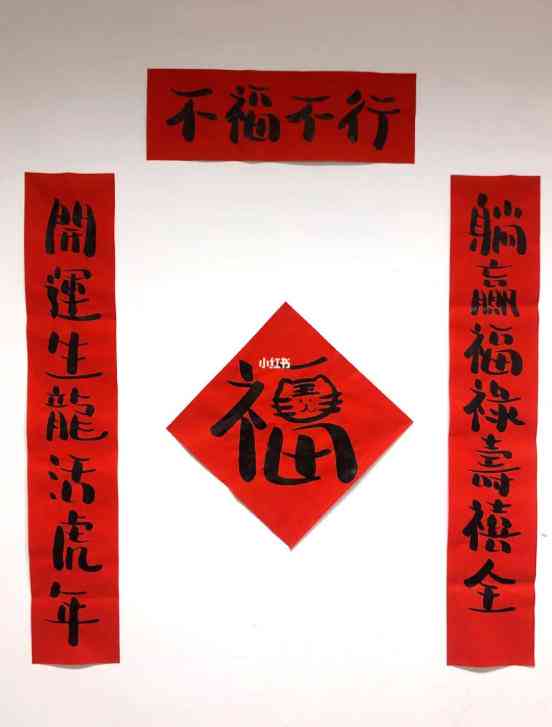 不福不行
躺贏福祿壽禧全
開運生龍活虎年
小红书
福